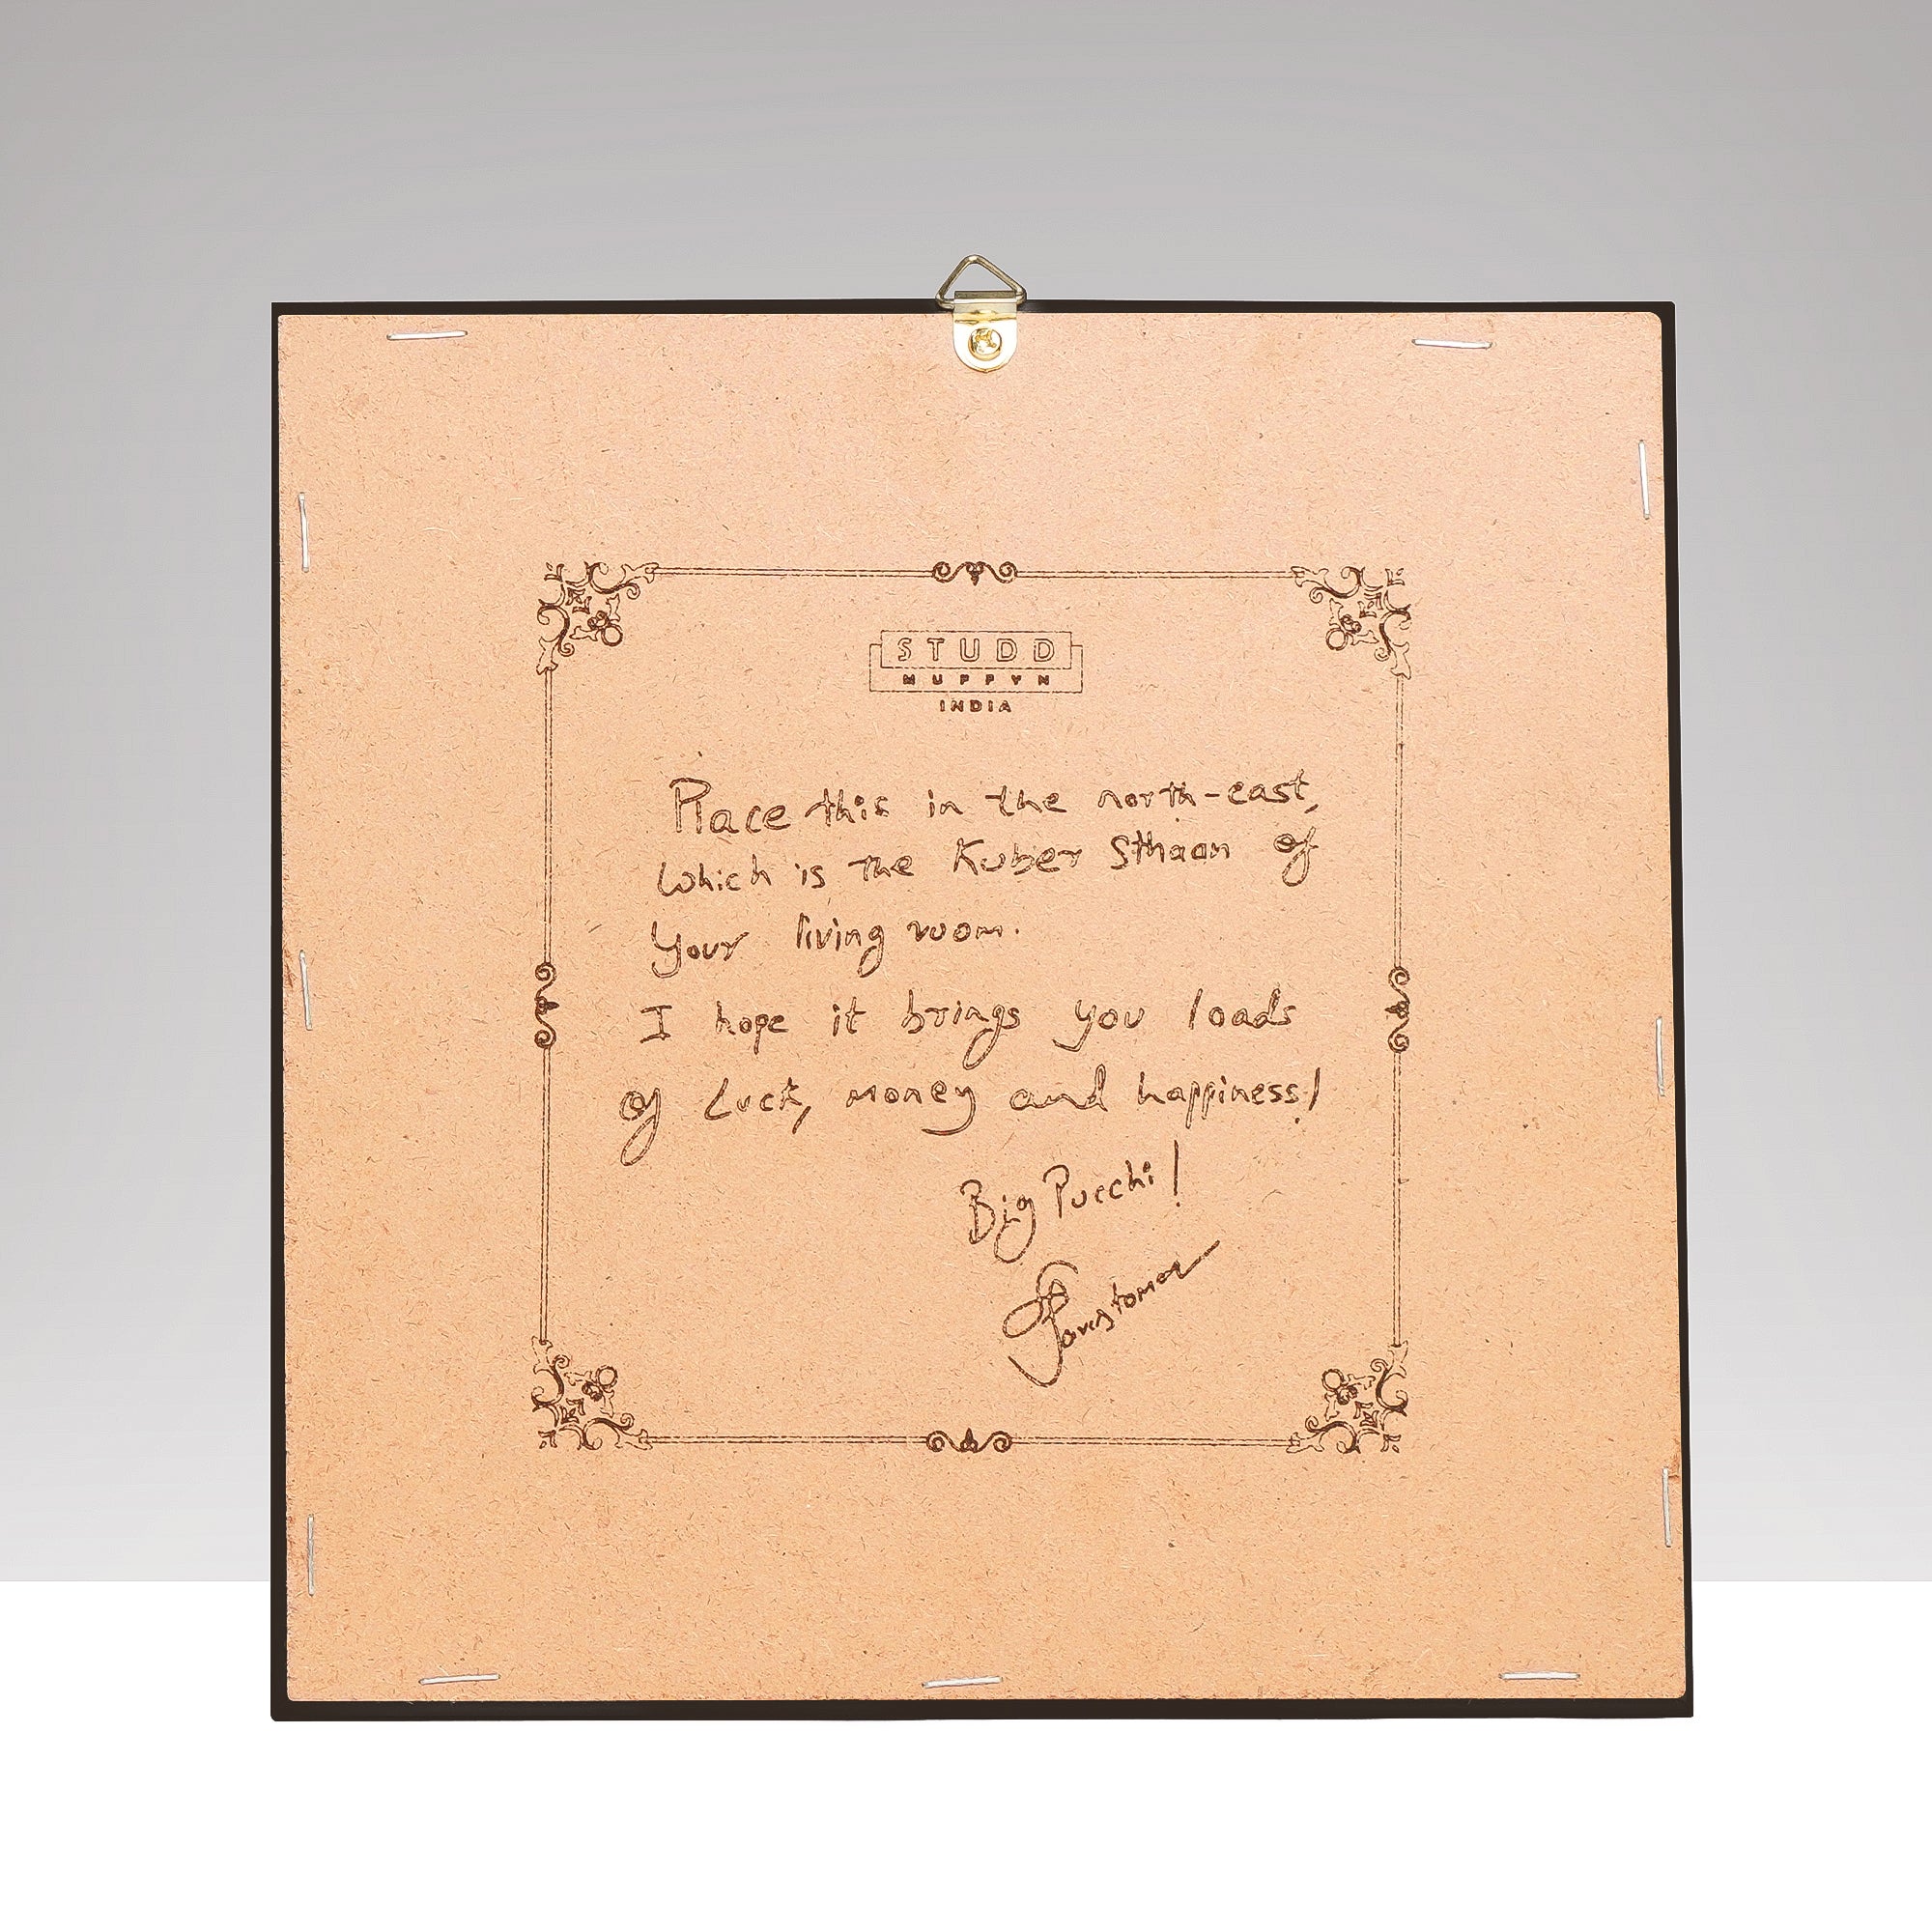 STUDD
MUFFYN
INDIA
Place this in the north-east,
which is the Kuber Sthaan of
your living room.
I hope it brings you loads
of luck, money and happiness!
Big Pucchi!